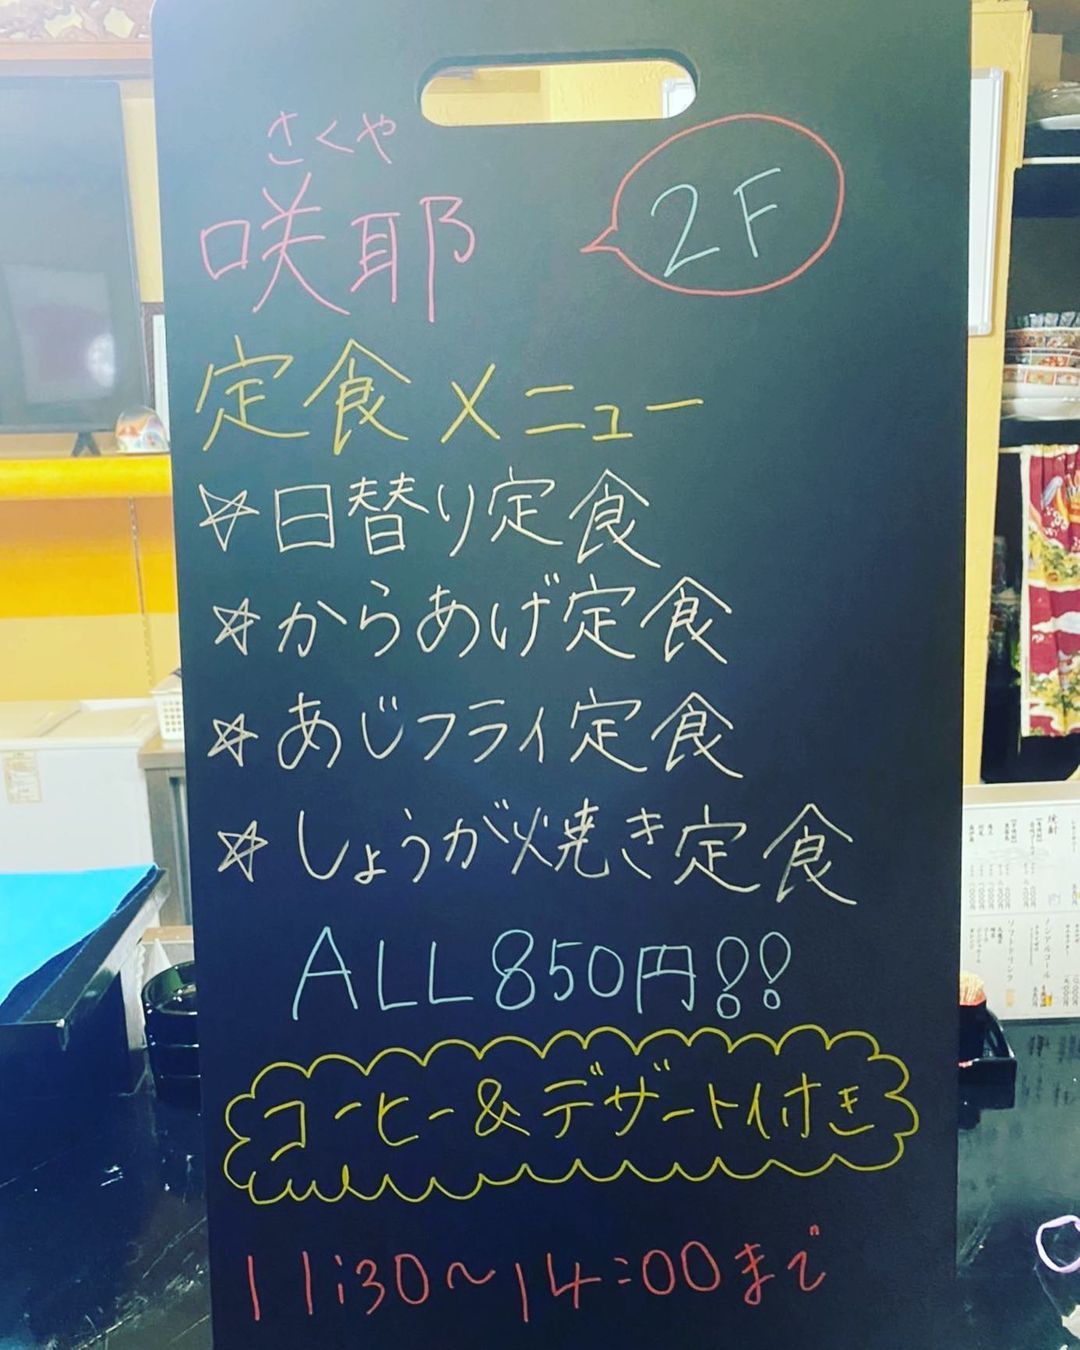 さくや
咲耶
2F
定食メニュー
☆日替り定食
☆からあげ定食
☆あじフライ定食
☆しょうが焼き定食
ALL850円!!
コーヒー&デザート付き
11:30〜14:00まで
焼酎
ノンアルコール
ソフトドリンク